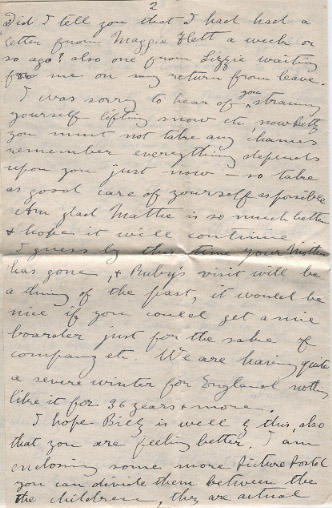 2
Did I tell you that I had had a
letter from Maggie Hett a week or
so ago? also one from Lizzie waiting
for me on my return from leave.
I was sorry to hear of you straining
yourself lifting snow etc now Betty
you must not take any chances
remember everything depends
upon you just now so take
as good care of yourself as possible
Am glad Mattie is so much better
& hope it will continue
I guess by this time your Mother
has gone, & Ruby's visit will be
a thing of the past, it would be
nice if you could get a nice
boarder just for the sake of
company etc. We are having quite
a severe winter for England nothg
like it for 36 years & more.
I hope Billy is well by this, also
that you are feeling better. I am
enclosing some more picture postcds
you can divide them between the
the children, they are actual